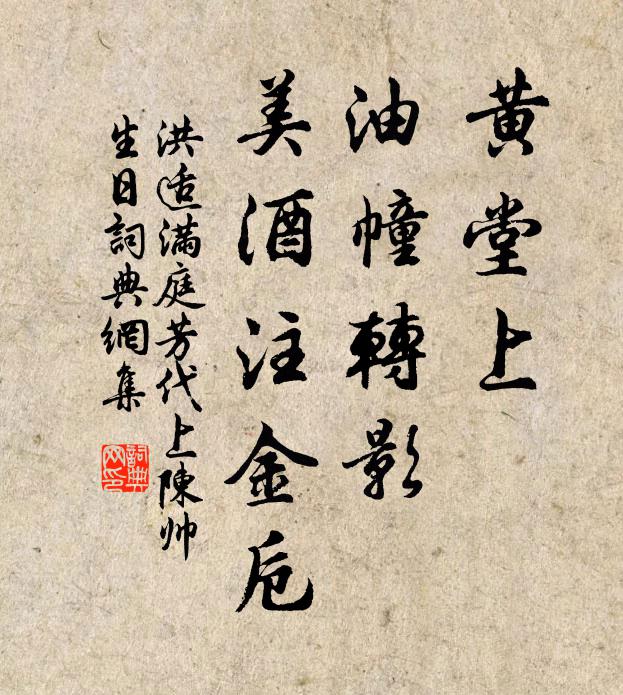 黃堂上
油幢轉影
美酒注金卮
洪适滿庭芳代上陳帅
生日詞典網集
詞典
网印